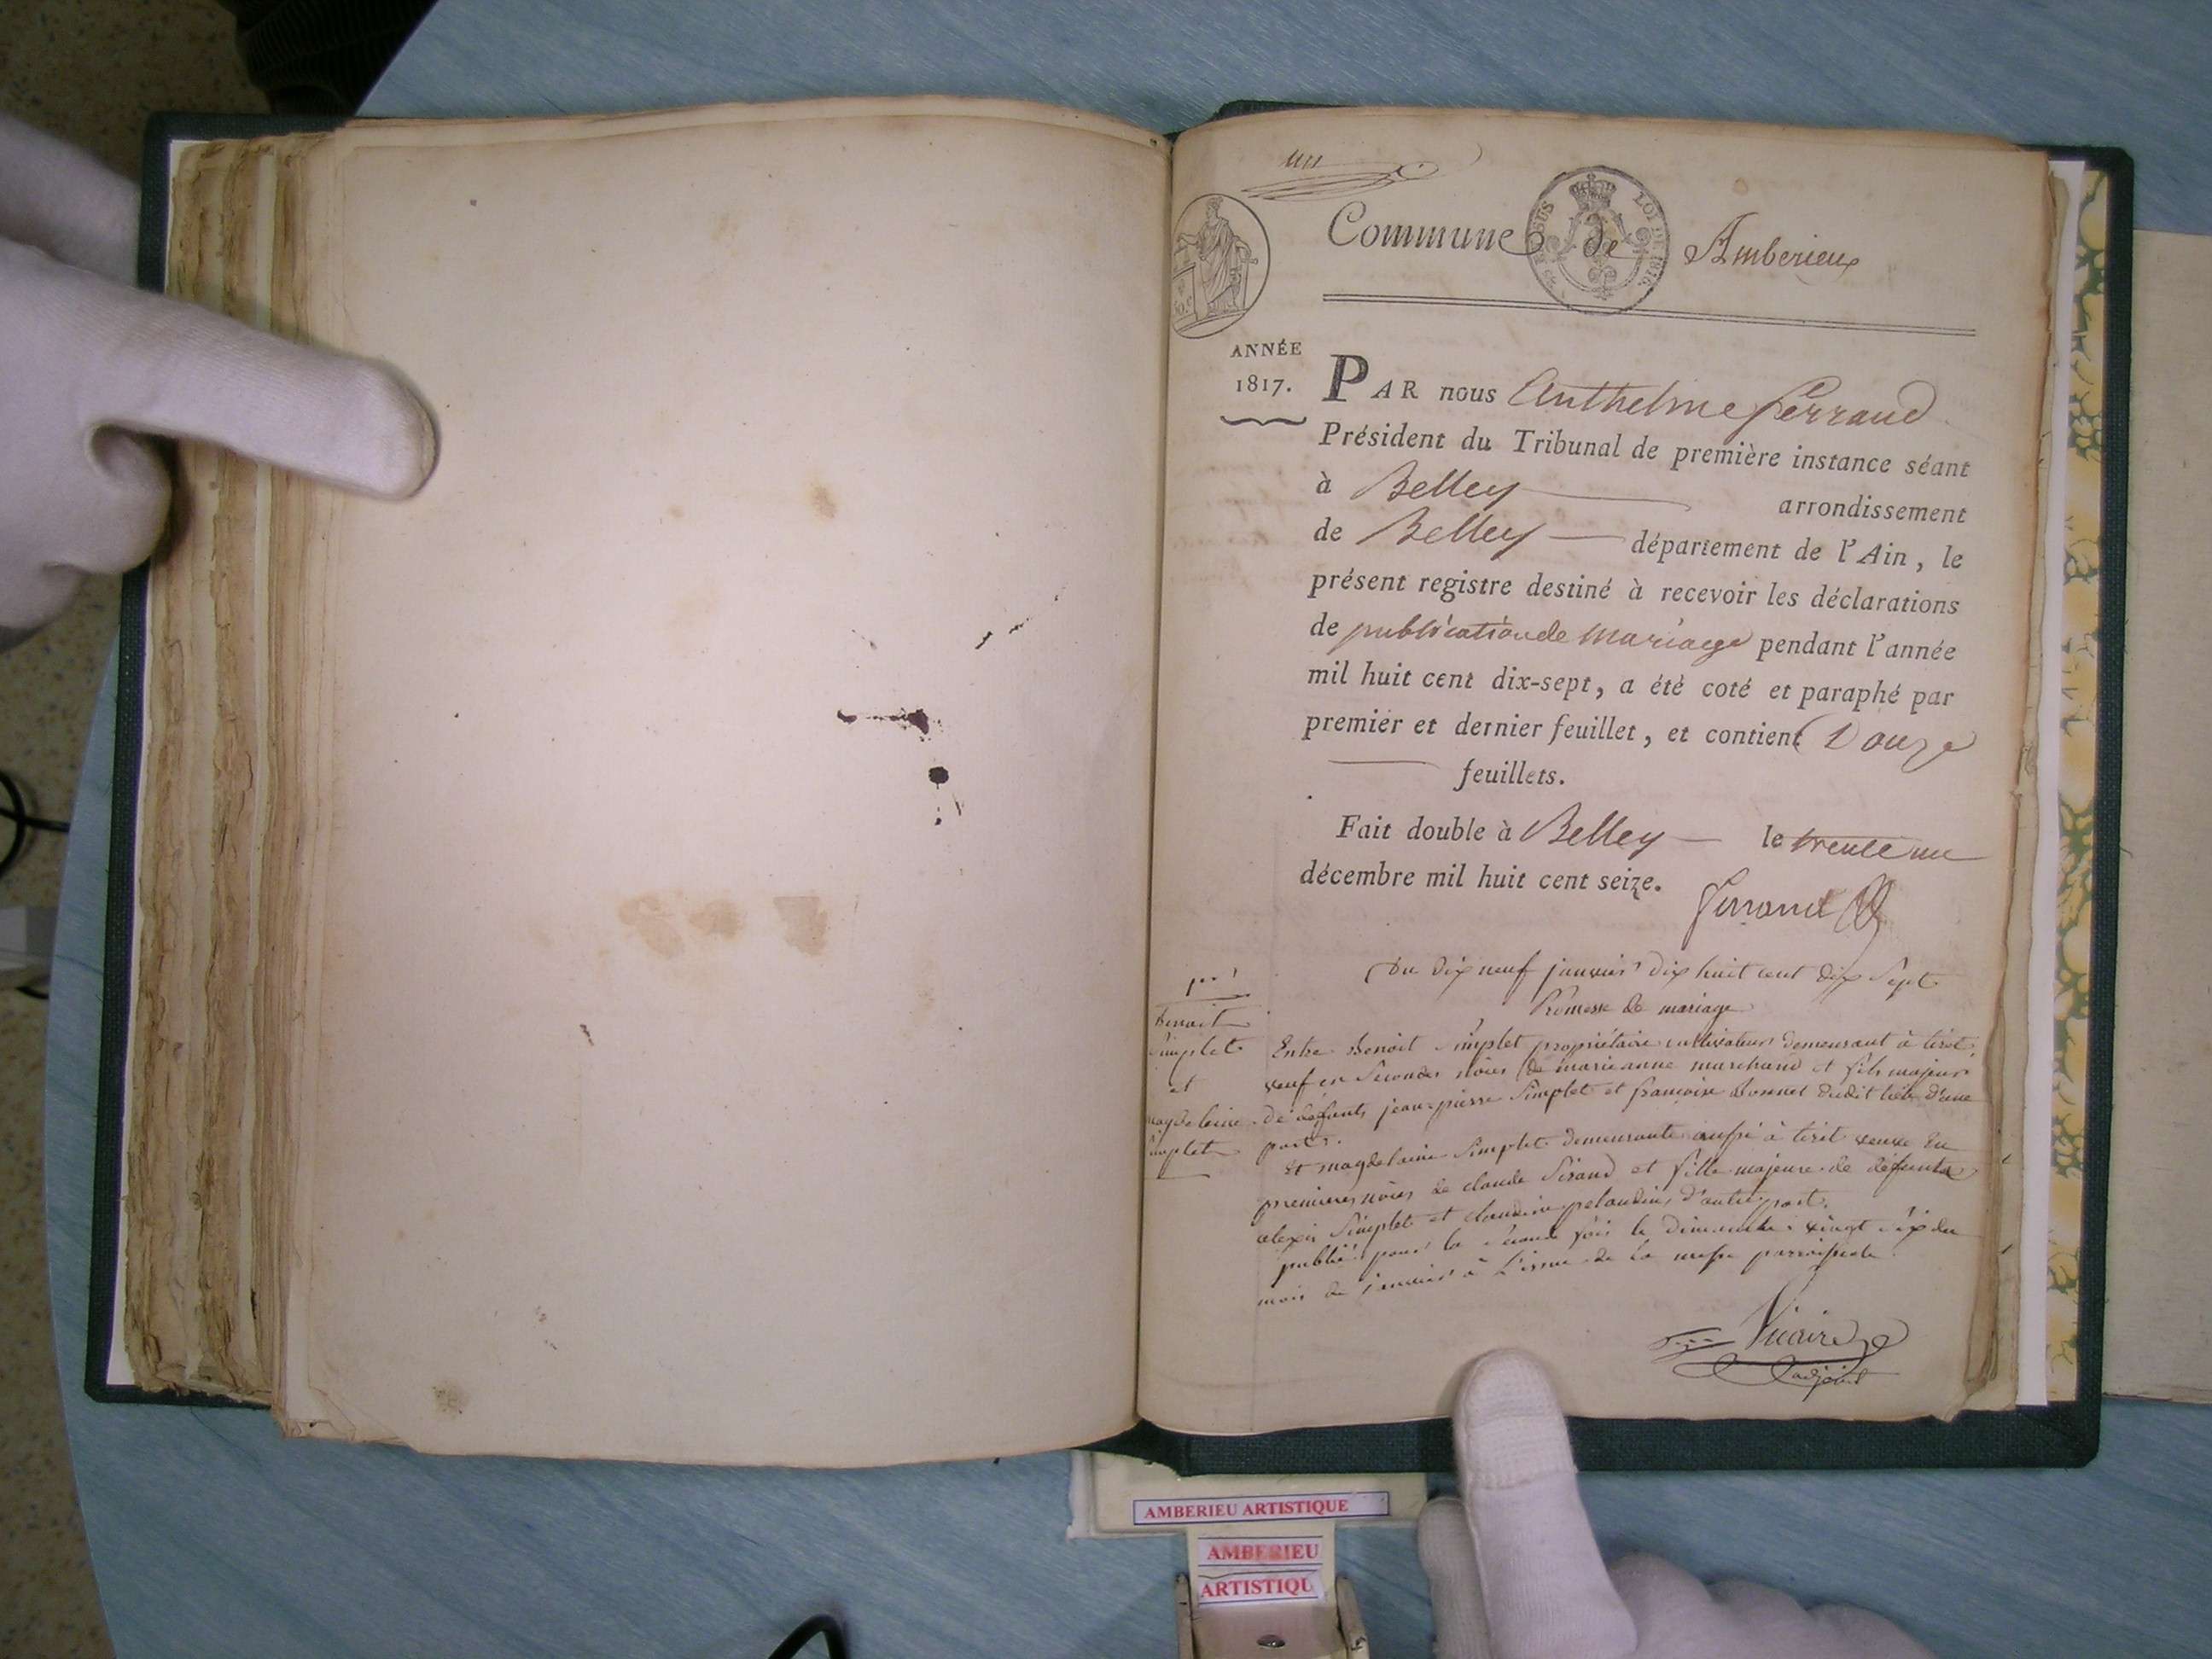 un
Commune de Amberieux
EN SUS LOI DE 1816.
ANNÉE
1817.
PAR nous Anthelme Ferrand
Président du Tribunal de première instance séant
à Belley arrondissement
de Belley département de l'Ain, le
présent registre destiné à recevoir les déclarations
de publication de mariage pendant l'année
mil huit cent dix-sept, a été coté et paraphé par
premier et dernier feuillet, et contient Douze
feuillets.
Fait double à Belley le trente un
décembre mil huit cent seize.
Ferrand
Du dix neuf janvier dix huit cent dix Sept
Promesse de mariage
benoit
Simplet
et
magdelaine
Simplet
Entre Benoit Simplet propriétaire cultivateur demeurant à tiret,
veuf en Secondes nôces de marieanne marchand et fils majeur
de défunts jean-pierre Simplet et françoise Bonnet dudit lieu d'une
part.
Et magdelaine Simplet demeurante aussi à tiret veuve En
premieres nôces de claude Sirand et fille majeure de défunts
alexis Simplet et claudine pelaudin, d'autre part.
publié pour la Seconde fois le Dimanche vingt Six du
mois de janvier à L'issue de La messe parroissiale
Vicaire
adjoint
AMBERIEU ARTISTIQUE
AMBERIEU
ARTISTIQU